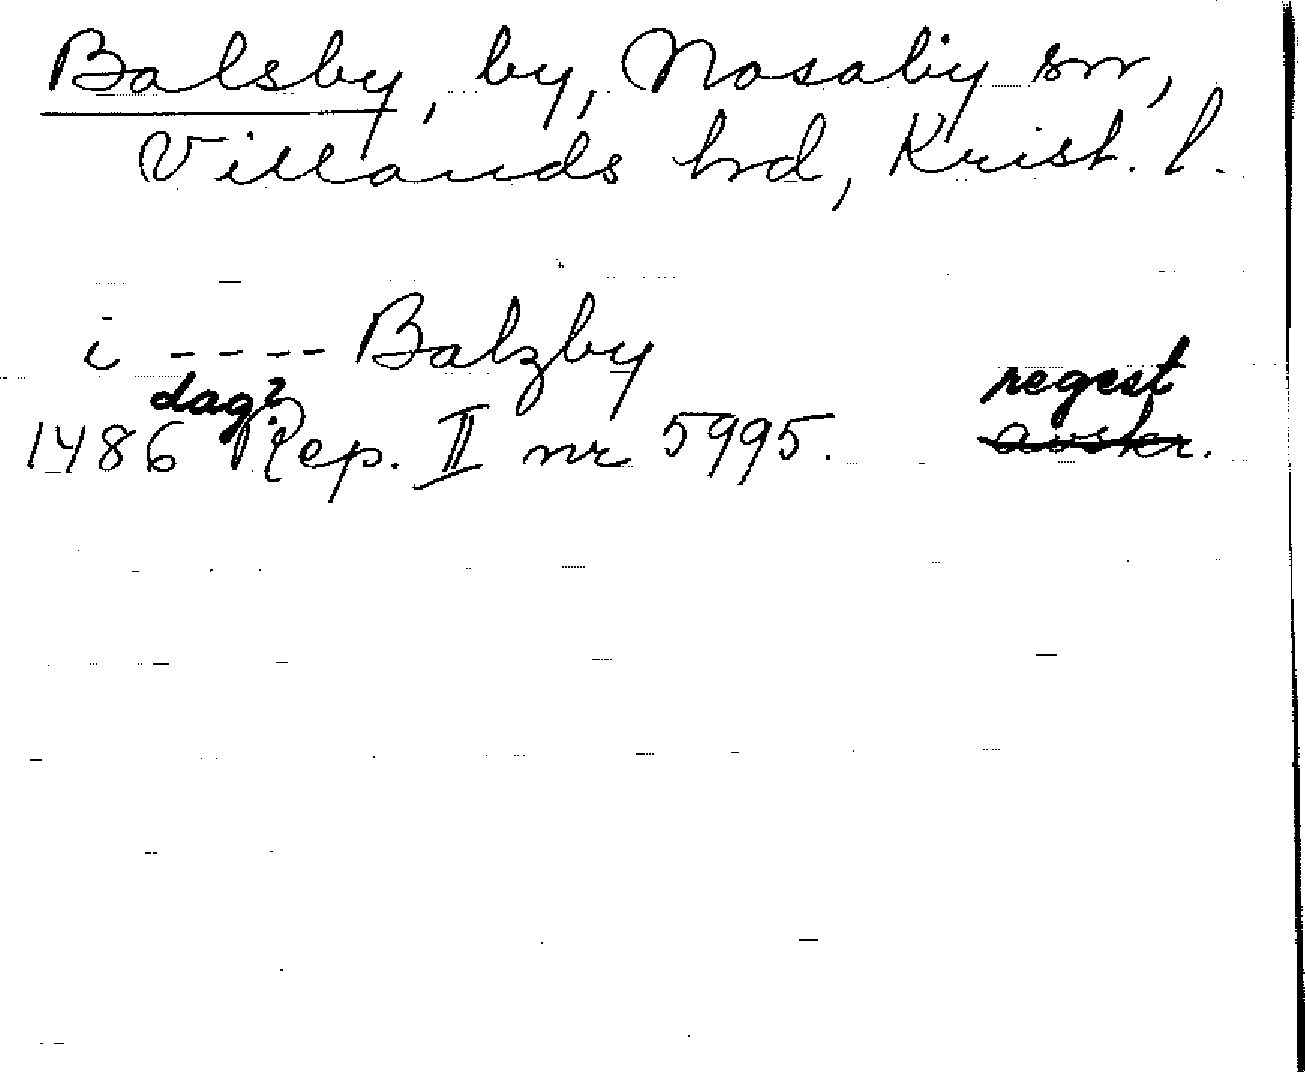 Balsby, by, Nosaby sn,
Villands hd, Krist. l.
i ---- Balzby
dag? regest
1486 Rep. II nr 5995. avskr.